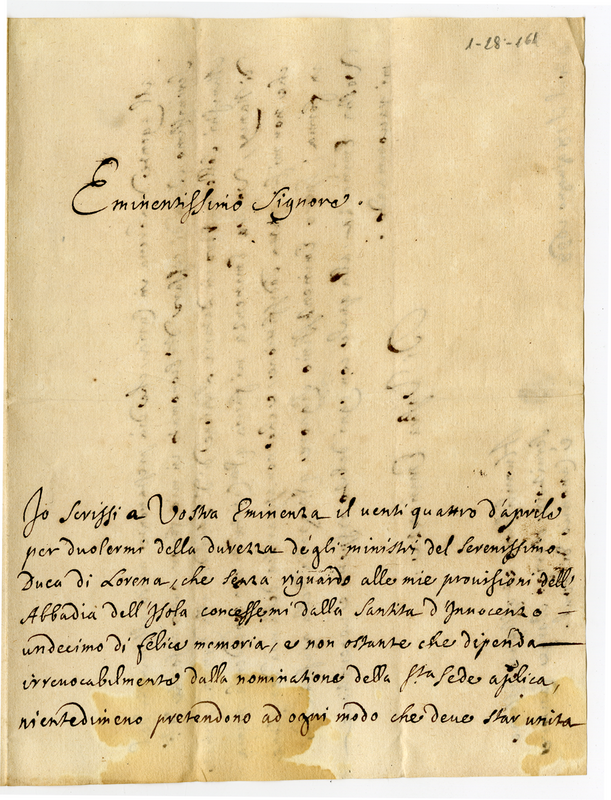 1-28-168
Eminentissimo Signore.
Io scrissi a Vostra Eminenza il venti quattro d'aprile
per duolermi della durezza de gli ministri del Serenissimo
Duca di Lorena, che senza riguardo alle mie provisioni dell'
Abbadia dell'Isola concessemi dalla Santita d'Innocenzo —
undecimo di felice memoria, e non ostante che dipenda —
irrevocabilmente dalla nominatione della Sta Sede aplica,
nientedimeno pretendono ad ogni modo che deve star unita